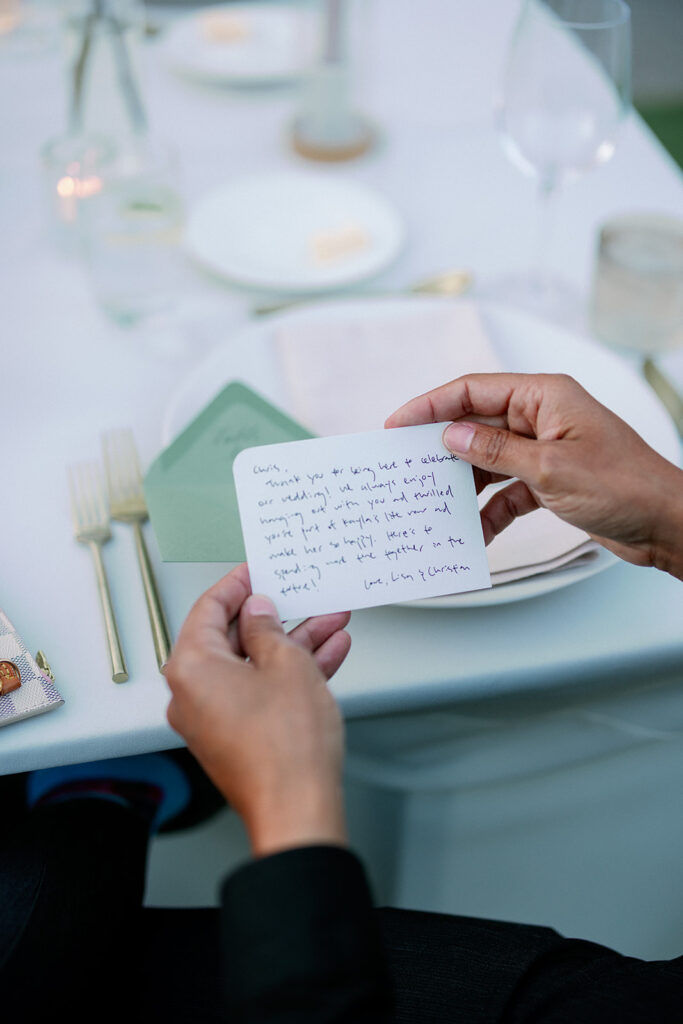 Chris,
Thank you for being here to celebrate
our wedding! We always enjoy
hanging out with you and thrilled
you're part of Kayla's life now and
make her so happy. Here's to
spending more time together in the
future!
Love, Lisa & Christian